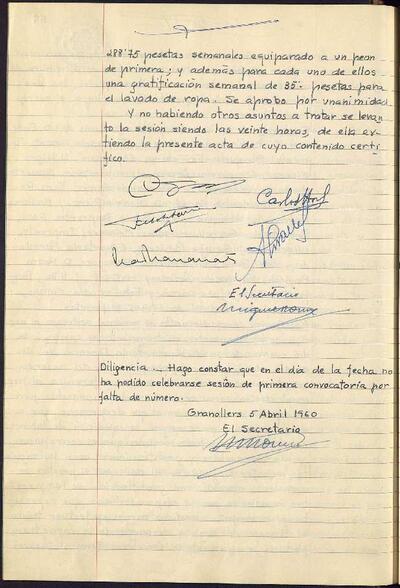 288'75 pesetas semanales equiparado a un peon
de primera; y además para cada uno de ellos
una gratificación semanal de 35.- pesetas para
el lavado de ropa. Se aprobo por unanimidad.
Y no habiendo otros asuntos a tratar se levan
to la sesión siendo las veinte horas, de ella ex-
tiendo la presente acta de cuyo contenido certi
fico.
Carlos
El Secretario
Diligencia.- Hago constar que en el día de la fecha no
ha podido celebrarse sesión de primera convocatoria por
falta de número.
Granollers 5 Abril 1960
El Secretario